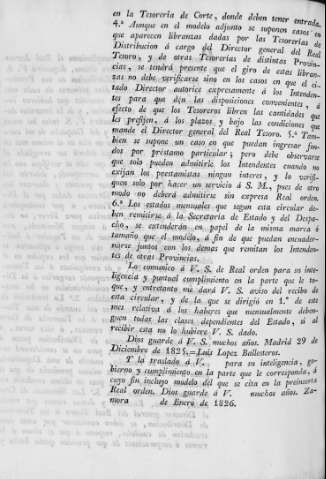 en la Tesorería de Corte, donde deben tener entrada.
4.º Aunque en el modelo adjunto se suponen casos en
que aparecen libranzas dadas por las Tesorerías de
Distribucion á cargo del Director general del Real
Tesoro, y de otras Tesorerías de distintas Provin-
cias, se tendrá presente que el giro de estas libran-
zas no debe verificarse sino en los casos en que el ci-
tado Director autorice expresamente á los Intenden-
tes para que den las disposiciones convenientes, á
efecto de que los Tesoreros libren las cantidades que
les prefijen, á los plazos y bajo las condiciones que
mande el Director general del Real Tesoro. 5.º Tam-
bien se supone un caso en que puedan ingresar fon-
dos por préstamo particular; pero debe observarse
que solo pueden admitirle los Intendentes cuando no
exijan los prestamistas ningun interes, y lo verifi-
quen solo por hacer un servicio á S. M., pues de otro
modo no deberá admitirse sin expresa Real orden.
6.º Los estados mensuales que segun esta circular de-
ben remitirse á la Secretaría de Estado y del Despa-
cho, se extenderán en papel de la misma marca ó
tamaño que el modelo, á fin de que puedan encuader-
narse juntos con los demas que remitan los Intenden-
tes de otras Provincias.
Lo comunico á V. S. de Real orden para su inte-
ligencia y puntual cumplimiento en la parte que le to-
que, y entretanto me dará V. S. aviso del recibo de
esta circular, y de la que se dirigió en 1.º de este
mes relativa á los haberes que mensualmente deben-
guen todas las clases dependientes del Estado, si al
recibir esta no lo hubiere V. S. dado.
Dios guarde á V. S. muchos años. Madrid 29 de
Diciembre de 1825.=Luis Lopez Ballesteros.
Y la traslado á V. para su inteligencia, go-
bierno y cumplimiento en la parte que le corresponda, á
cuyo fin incluyo modelo del que se cita en la preinserta
Real orden. Dios guarde á V. muchos años. Za-
mora de Enero de 1826.